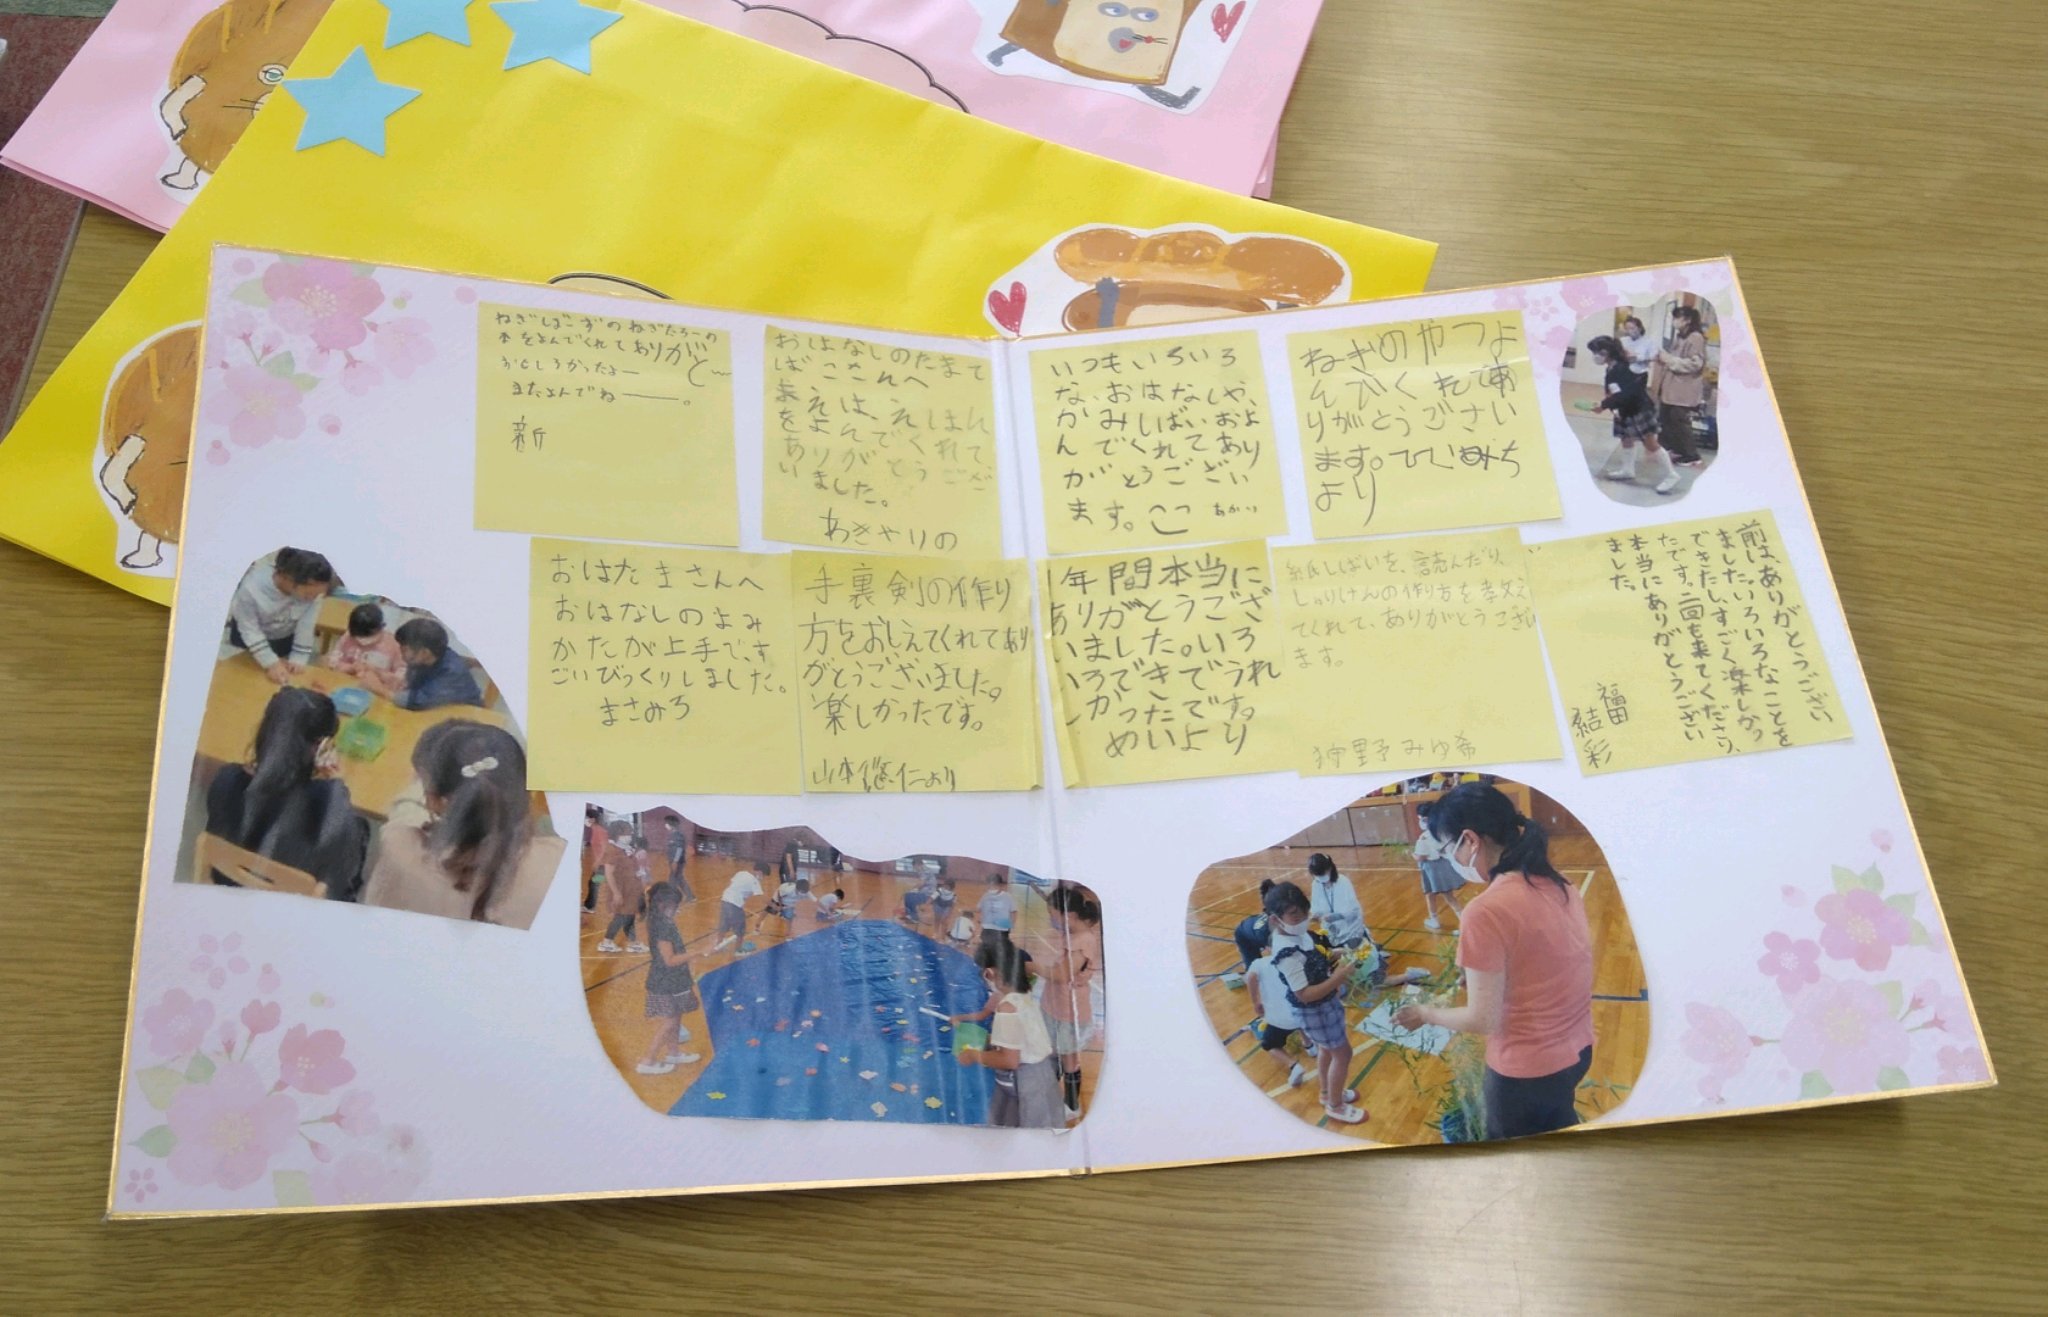 ねぎしばこずのねぎたろーの
本をよんでくれてありがと〜
うれしうかったよー
またよんでね――。
新
おはなしのたまて
ばこさんへ
まえは、えほん
をよんでくれて、
ありがとうござ
いました。
わきやりの
いつもいろいろ
な、おはなしや、
かみしばいおよ
んでくれてあり
がとうござい
ます。
あかり
ねぎのやつよ
んでくれてあ
りがとうござい
ます。ひでみち
より
おはたまさんへ
おはなしのよみ
かたが上手です
ごいびっくりしました。
まさみち
手裏剣の作り
方をおしえてくれてあり
がとうございました。
楽しかったです。
山本悠仁より
1年間本当に、
ありがとうござ
いました。いろ
いろできてうれ
しかったです。
めいより
紙しばいを、読んだり、
しゅりけんの作り方を教え
てくれて、ありがとうござい
ます。
狩野みゆ希
前は、ありがとうござい
ました。いろいろなことを
できたし、すごく楽しかっ
たです。二回も来てくださり、
本当にありがとうござい
ました。
福田
結彩